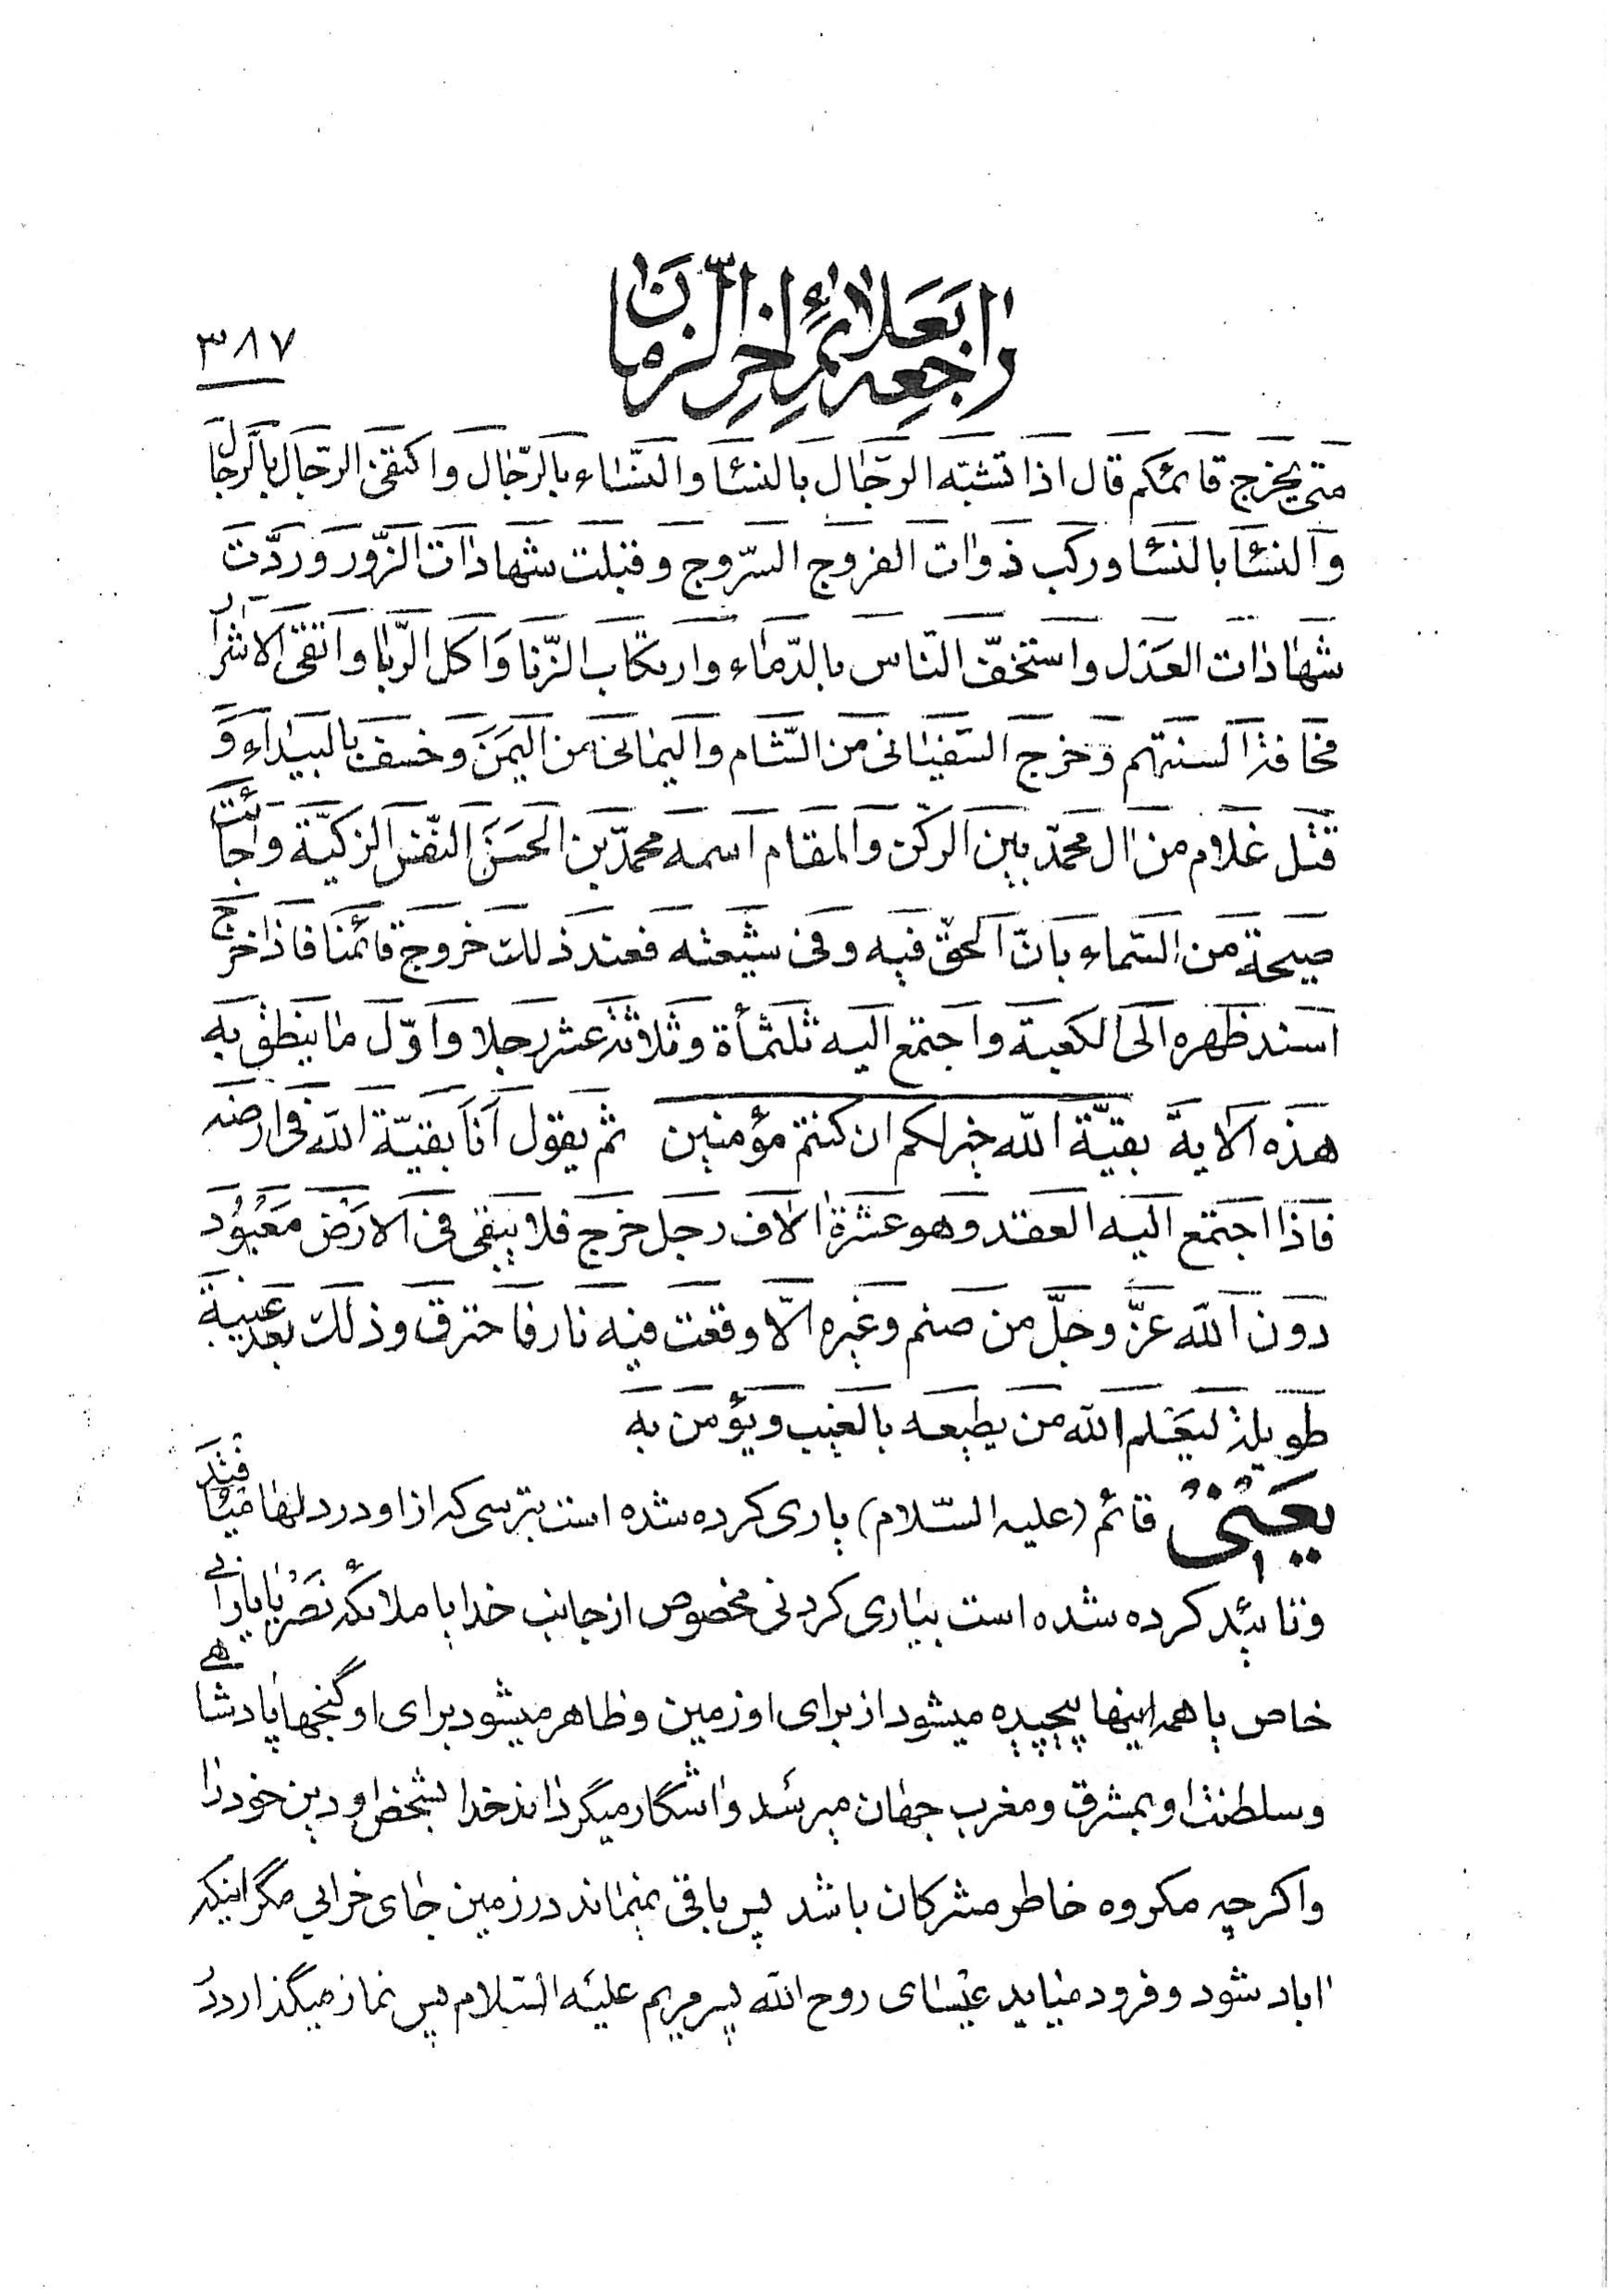 راجعه بعلائم اخر الزمان
۳۸۷
متی یخرج قائمکم قال اذا تشبّه الرّجال بالنسٓا والنّساء بالرّجال واکتفی الرّجال بالرّجال
والنسٓا بالنسٓا ورکب ذوات الفروج السّروج وقبلت شهادات الزّور وردّت
شهادات العدل واستخفّ النّاس بالدّماء وارتکاب الزّنا واکل الرّبا واتّقی الاشرار
مخافة السنتهم وخرج السّفیانی من الشّام والیمانی من الیمن وخسف بالبیداء و
قتل غلام من ال محمّد بین الرکن والمقام اسمه محمّد بن الحسن النّفس الزکیّة وجائت
صیحة من السّماء بانّ الحقّ فیه وفی شیعته فعند ذلک خروج قائمنا فاذا خرج
اسند ظهره الی الکعبة واجتمع الیه ثلثمأة وثلاثة عشر رجلا واوّل ما ینطق به
هذه الایة بقیّة الله خیر لکم ان کنتم مؤمنین ثم یقول انا بقیّة الله فی ارضه
فاذا اجتمع الیه العقد وهو عشرة الاف رجل خرج فلا یبقی فی الارض معبود
دون الله عزّ وجلّ من صنم وغیره الّا وقعت فیه نار فاحترق وذلک بعد غیبة
طویلة لیعلم الله من یطیعه بالغیب ویؤمن به
یعنی قائم (علیه السّلام) یاری کرده شده است بترسی که از او در دلها میافتد
وتائید کرده شده است بیاری کردنی مخصوص از جانب خدا با ملائکه نصر با یارانی
خاص با همه اینها پیچیده میشود از برای او زمین وظاهر میشود برای او گنجها پادشاهی
وسلطنت او بمشرق ومغرب جهان میرسد واشگار میگرداند خدا بشخص او دین خود را
واکرچه مکروه خاطر مشرکان باشد پس باقی نمیماند در زمین جای خرابی مگر اینکه
اباد شود وفرود میاید عیسای روح الله پسر مریم علیه السّلام پس نماز میگذارد در